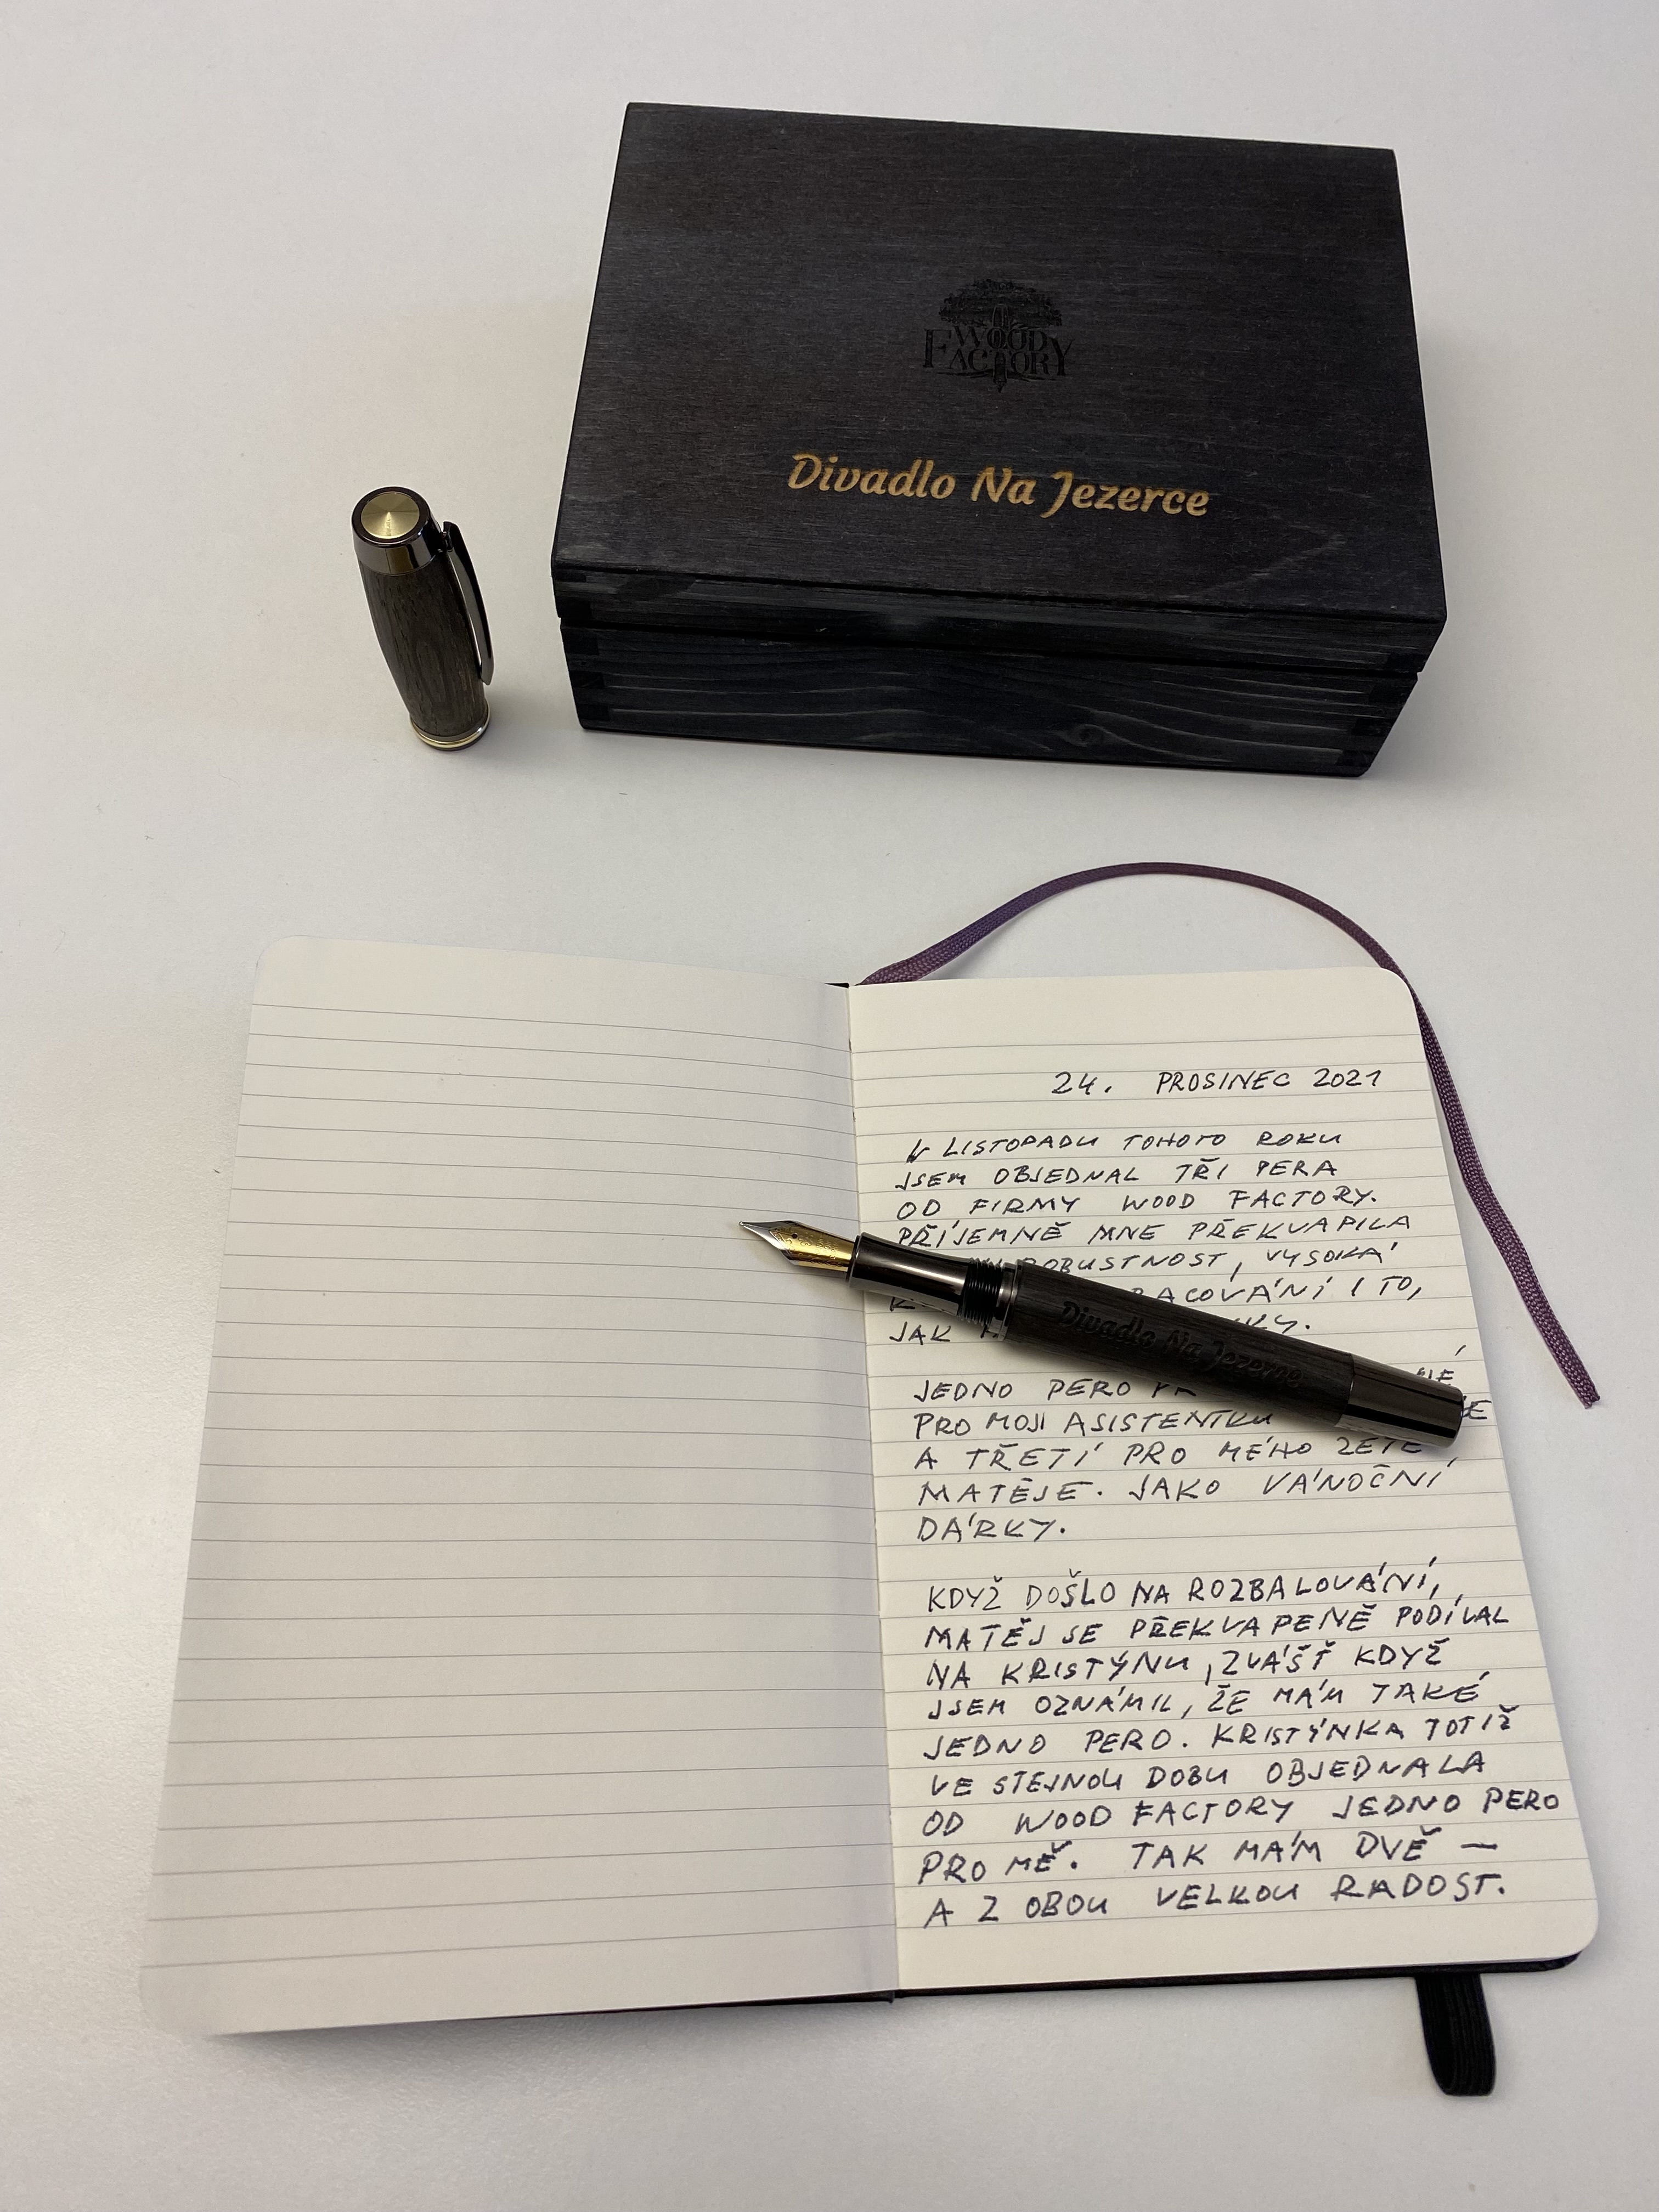 WOOD
FACTORY
Divadlo Na Jezerce
24. PROSINEC 2021
V LISTOPADU TOHOTO ROKU
JSEM OBJEDNAL TŘI PERA
OD FIRMY WOOD FACTORY.
PŘÍJEMNĚ MNE PŘEKVAPILA
ROBUSTNOST, VYSOKÁ
I TO,
JAK
JEDNO PERO
PRO MOJI ASISTENTKU
A TŘETÍ PRO MÉHO ZETĚ
MATĚJE. JAKO VÁNOČNÍ
DÁRKY.
KDYŽ DOŠLO NA ROZBALOVÁNÍ,
MATĚJ SE PŘEKVAPENĚ PODÍVAL
NA KRISTÝNU, ZVÁŠŤ KDYŽ
JSEM OZNÁMIL, ŽE MÁM TAKÉ
JEDNO PERO. KRISTÝNKA TOTIŽ
VE STEJNOU DOBU OBJEDNALA
OD WOOD FACTORY JEDNO PERO
PRO MĚ. TAK MÁM DVĚ —
A Z OBOU VELKOU RADOST.
Divadlo Na Jezerce